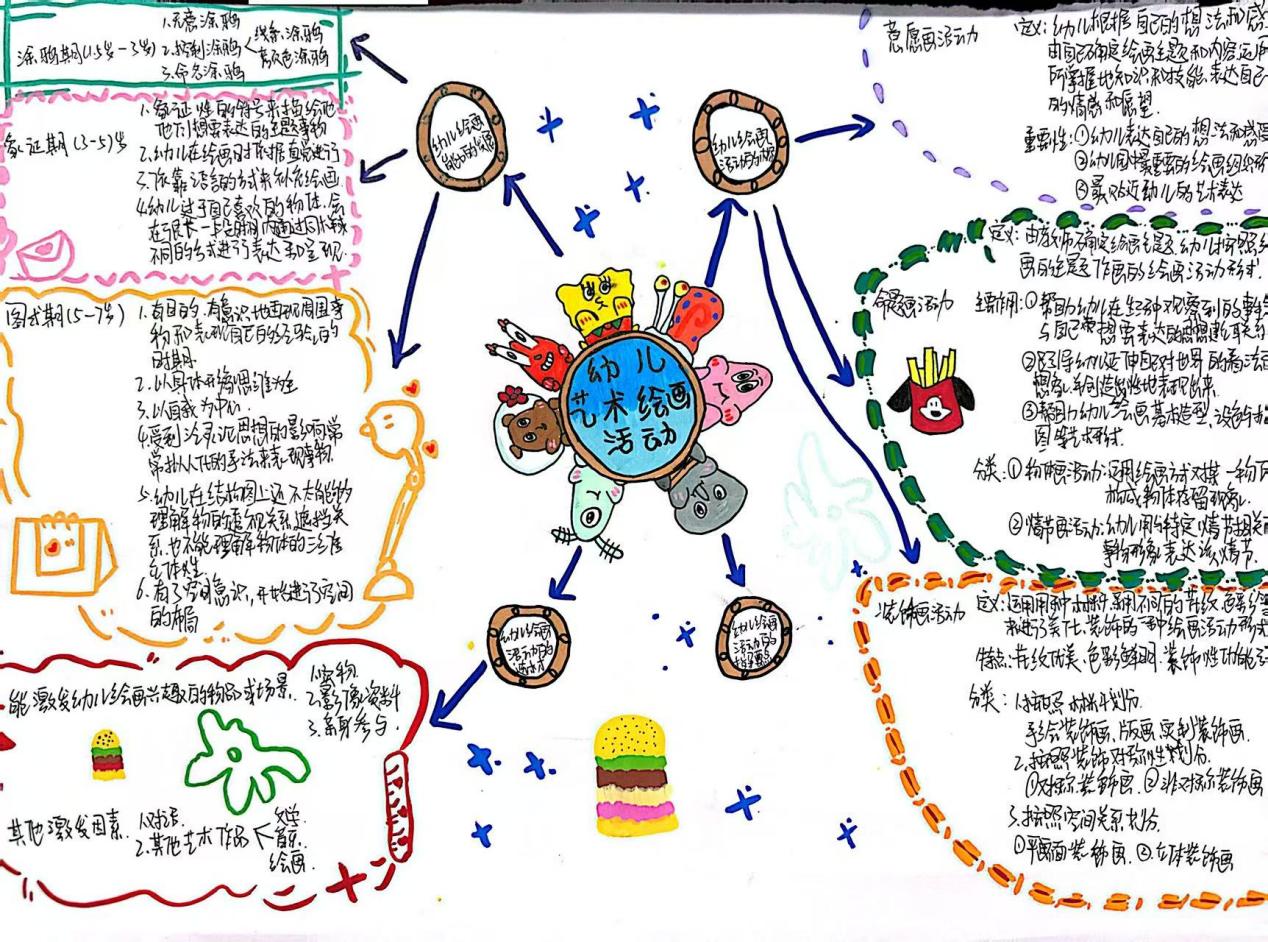 1.无意涂鸦
涂鸦期(1.5岁-3岁) 2.控制涂鸦 线条涂鸦
3.命名涂鸦
象征期(3-5)岁
1.象征性的符号来描绘他
他们想要表达的主题事物
2.幼儿在绘画时依据直觉进行
3.依靠语言的方式来补充绘画
4.幼儿对于自己喜欢的物体,会
在很长一段时间内通过
不同的方式进行表达和呈现.
图式期(5-7岁)
1.有目的,有意识地画现周围事
物和表现自己的经验的
时期
2.以具体形象思维为主
3.以自我为中心
4.受到泛灵论思想的影响常
常拟人化的手法来表现事物.
5.幼儿在结构图上还不太能够
理解事物的 关系,遮挡关
系,也不能理解物体的三维
立体性.
6.有了空间意识,开始进行空间
的布局
能激发幼儿绘画兴趣的物品或场景
1.实物
2.影像资料
3.亲身参与.
其他激发因素.
1.对话.
2.其他艺术作品
文学
音乐
绘画.
幼儿绘画
能力的发展
幼儿绘画
活动的
幼儿
艺术绘画
活动
幼儿绘画
活动的
幼儿绘画
活动的
意愿画活动
定义:幼儿根据自己的想法和感
由自己确定绘画主题和内容,运用
所掌握地知识和技能,表达自己
的情感和愿望.
重要性:①幼儿表达自己的想法和感受
②幼儿园最重要的绘画组织形
③最贴近幼儿的艺术表达
命题画活动
定义:由教师确定绘画主题,幼儿按照
画的主题作画的绘画活动形式.
主要作用:①帮助幼儿在生活中观察到的事物
与自己想要表达的思想建立联系
②引导幼儿延伸自己对世界的看法
想象,并创造性地表现出来.
③帮助幼儿 绘画基本造型,设色
图等技术研讨.
分类:①物体画活动:运用绘画方式对某一物
②情节画活动:幼儿用与特定情节相关
事物形象表达该情节.
装饰画活动
定义:运用用种材料,利用不同的花纹,色彩
来进行美化、装饰的一种绘画活动形式
特点:花纹优美、色彩鲜明、装饰性功能
分类:1.按照材料划分.
手绘装饰画、版画、实制装饰画.
2.按照装饰对称性划分.
①对称装饰画.②非对称装饰画
3.按照空间关系划分.
①平面装饰画.②立体装饰画